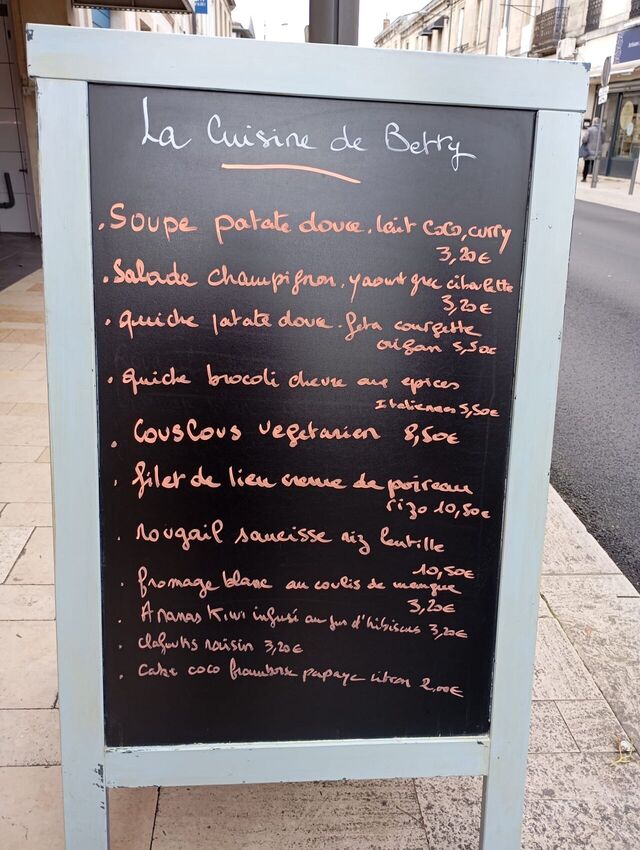 La Cuisine de Betty
. Soupe patate douce. lait coco, curry
3,20€
. Salade champignon. yaourt grec ciboulette
3,20€
. quiche patate douce. feta courgette
origan 5,50€
. quiche brocoli chevre aux epices
Italiennes 5,50€
. Couscous vegetarien 8,50€
. filet de lieu creme de poireau
rizo 10,50€
. rougail saucisse riz lentille
10,50€
. fromage blanc au coulis de mangue
3,20€
. Ananas Kiwi infusé au jus d'hibiscus 3,20€
. clafoutis raisin 3,20€
. Cake coco framboise papaye citron 2,00€